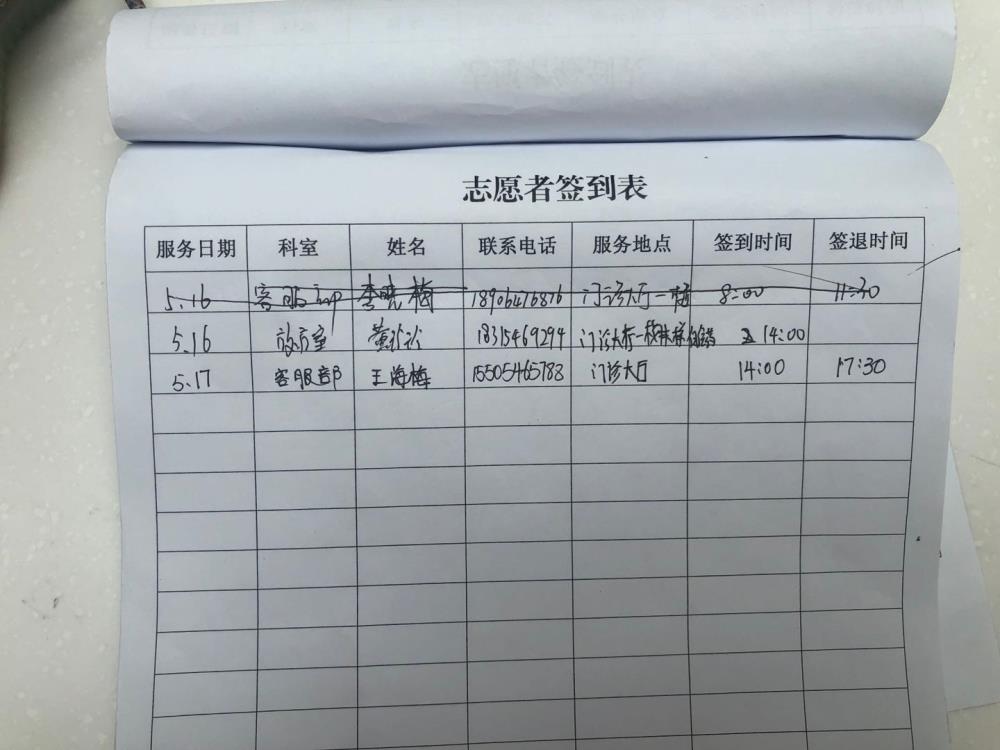 志愿者签到表
服务日期 科室 姓名 联系电话 服务地点 签到时间 签退时间
5.16 客服部 李晓梅 18906476876 门诊大厅一楼 8:00 11:30
5.16 放疗室 黄 18315469294 门诊大厅一楼扶梯 14:00
5.17 客服部 王海梅 15505465783 门诊大厅 14:00 17:30